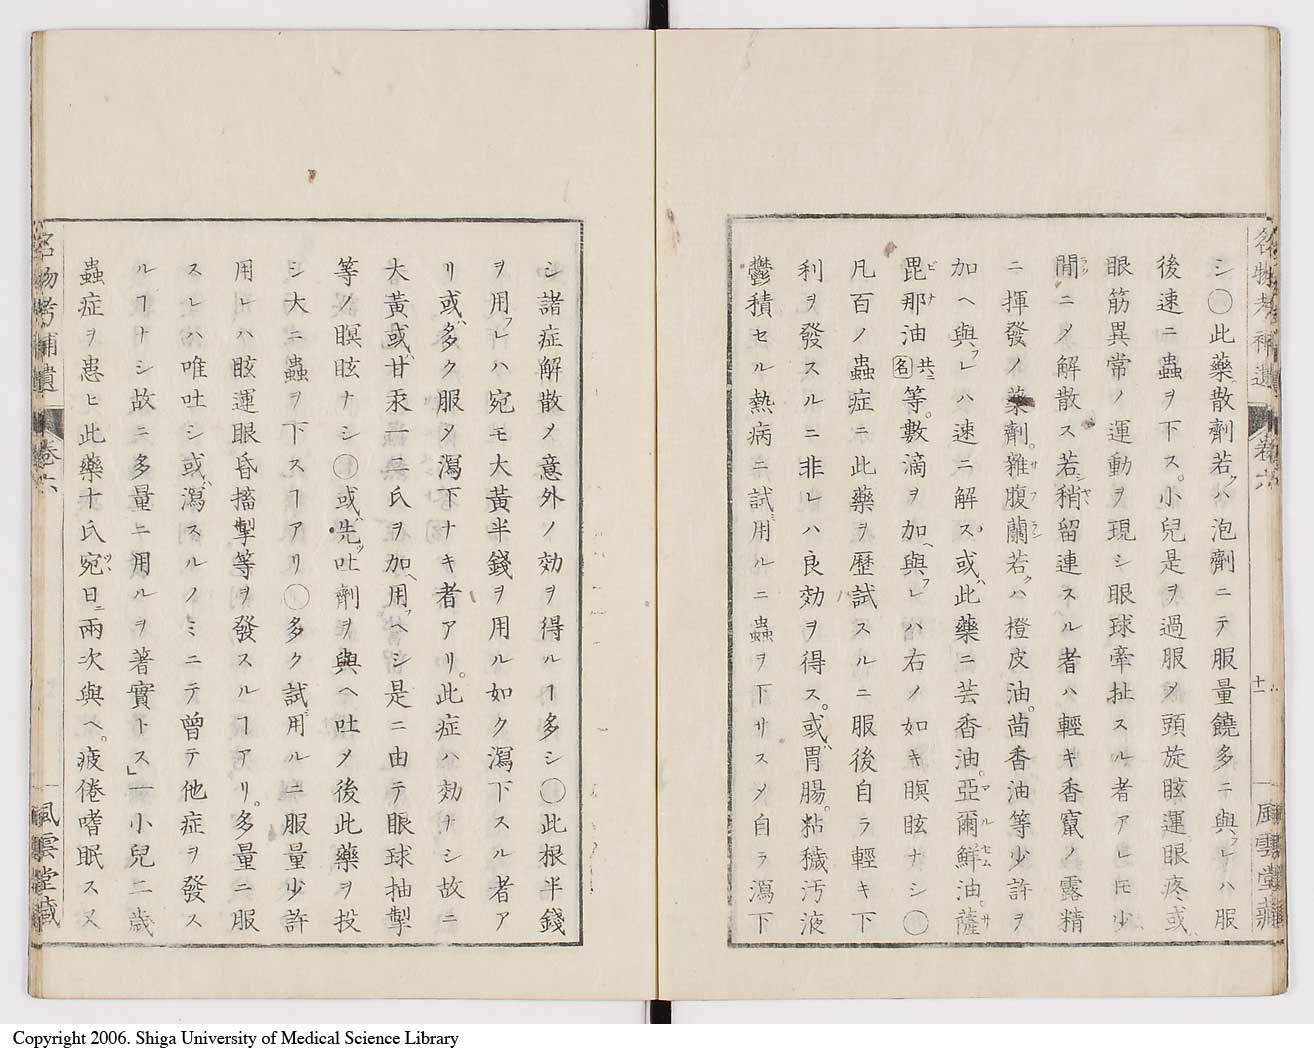 名物考補遺 卷六 十二 風雲堂藏
シ〇此藥散劑若クハ泡劑ニテ服量饒多ニ與フレハ服
後速ニ蟲ヲ下ス。小兒是ヲ過服〆頭旋眩運眼疼或ハ
眼筋異常ノ運動ヲ現シ眼球牽扯スル者アレ𪜈少
間ニ〆解散ス若シ稍留連スル者ハ輕キ香竄ノ露精
ニ揮發ノ藥劑。雜腹蘭若クハ橙皮油。茴香油等少許ヲ
加ヘ與フレハ速ニ解ス。或ハ此藥ニ芸香油。亞爾鮮油。薩
毘那油共ニ名等。數滴ヲ加ヘ與フレハ右ノ如キ瞑眩ナシ〇
凡百ノ蟲症ニ此藥ヲ歷試スルニ服後自ラ輕キ下
利ヲ發スルニ非レハ良効ヲ得ス。或ハ胃腸。粘穢汚液
鬱積セル熱病ニ試ミ用ルニ蟲ヲ下サス〆自ラ瀉下
シ諸症解散〆意外ノ効ヲ得ルヿ多シ〇此根半錢
ヲ用フレハ宛モ大黃半錢ヲ用ル如ク瀉下スル者ア
リ或ハ多ク服〆瀉下ナキ者アリ。此症ハ効ナシ故ニ
大黃或ハ甘汞一二氏ヲ加ヘ用フヘシ是ニ由テ眼球抽掣
等ノ瞑眩ナシ〇或ハ先ツ吐劑ヲ與ヘ吐〆後此藥ヲ投
シ大ニ蟲ヲ下スヿアリ〇多ク試ミ用ルニ服量少許
用レハ眩運眼昏搐掣等ヲ發スルヿアリ。多量ニ服
スレハ唯吐シ或ハ瀉スルノミニテ曾テ他症ヲ發ス
ルヿナシ故ニ多量ニ用ルヲ著實トス」一小兒二歲
蟲症ヲ患ヒ此藥十氏宛ツ日ニ兩次與ヘ。疲倦嗜眠ス又
名物考補遺 卷六 風雲堂藏